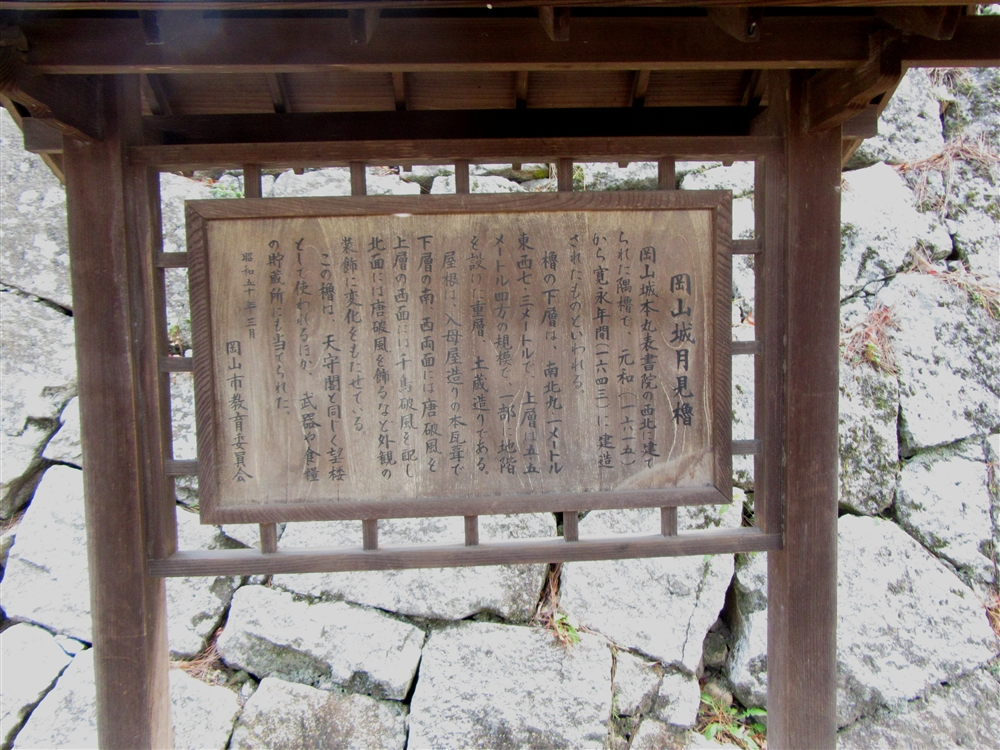 岡山城月見櫓
岡山城本丸表書院の西北に建て
られた隅櫓で、元和(一六一五)
から寛永年間(一六四三)に建造
されたものといわれる。
櫓の下層は、南北九・一メートル
東西七・三メートルで、上層は五・五
メートル四方の規模で、一部に地階
を設けた重層、土蔵造りである。
屋根は、入母屋造りの本瓦葺で
下層の南、西両面には唐破風を
上層の西面には千鳥破風を配し
北面には唐破風を飾るなど外観の
装飾に変化をもたせている。
この櫓は、天守閣と同じく望楼
として使われるほか、武器や食糧
の貯蔵所にも当てられた。
昭和五十 年三月
岡山市教育委員会